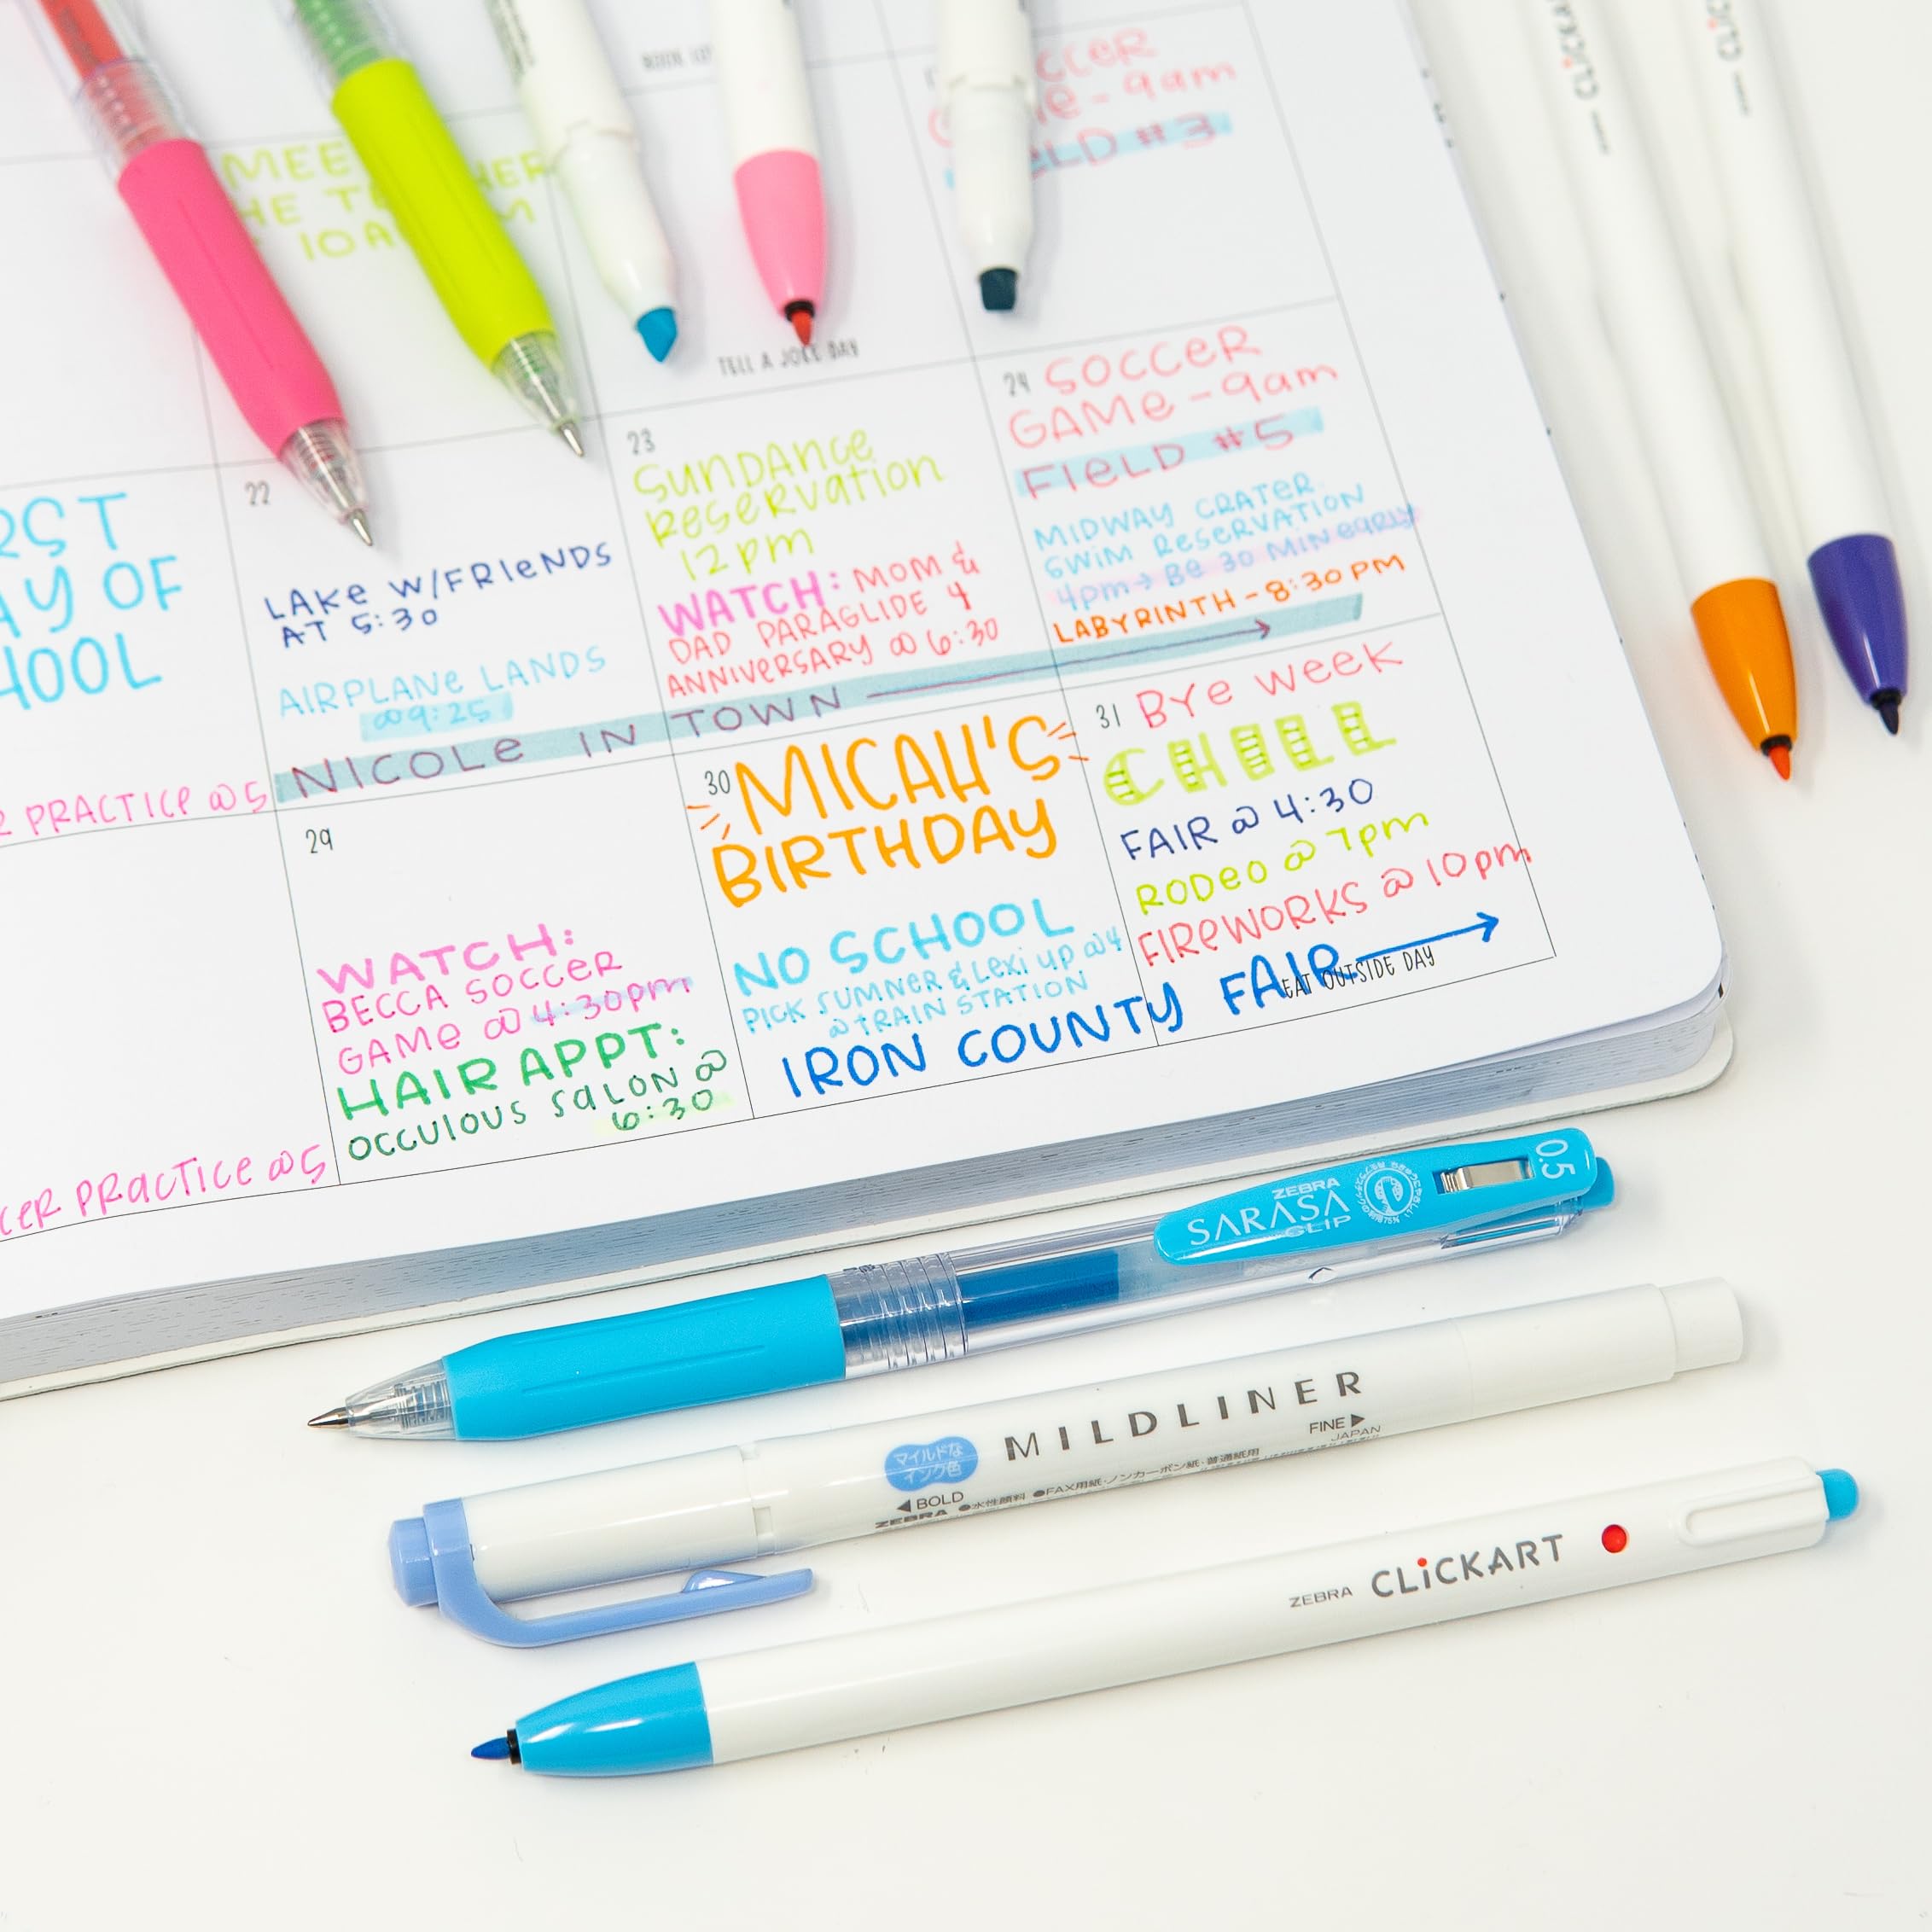 MEE
HE TE HER
10A M
9am
ELD #3
TELL A JOKE DAY
RST
AY OF
HOOL
PRACTICE @5
22
LAKE W/FRIENDS
AT 5:30
AIRPLANE LANDS
@9:25
NICOLE IN TOWN
23
SUNDANCE
RESERVATION
12pm
WATCH: MOM &
DAD PARAGLIDE 4
ANNIVERSARY @ 6:30
24 SOCCER
GAME - 9am
FIELD #5
MIDWAY CRATER
SWIM RESERVATION
4pm → BE 30 MIN EARLY
LABYRINTH - 8:30 PM
29
WATCH:
BECCA SOCCER
GAME @ 4:30pm
HAIR APPT:
OCCULOUS SALON @
6:30
CER PRACTICE @5
30 MICAH'S
BIRTHDAY
NO SCHOOL
PICK SUMNER & LEXI UP @4
@ TRAIN STATION
IRON COUNTY FAIR
31 BYE WEEK
CHILL
FAIR @ 4:30
RODEO @ 7pm
FIREWORKS @ 10pm
EAT OUTSIDE DAY
CLiCKA
CLiC
ZEBRA
SARASA
CLIP
0.5
マイルドな
インク色
MILDLINER
◀BOLD
FINE▶
JAPAN
ZEBRA ●水性顔料 ●FAX用紙・ノンカーボン紙・普通紙用
ZEBRA CLiCKART